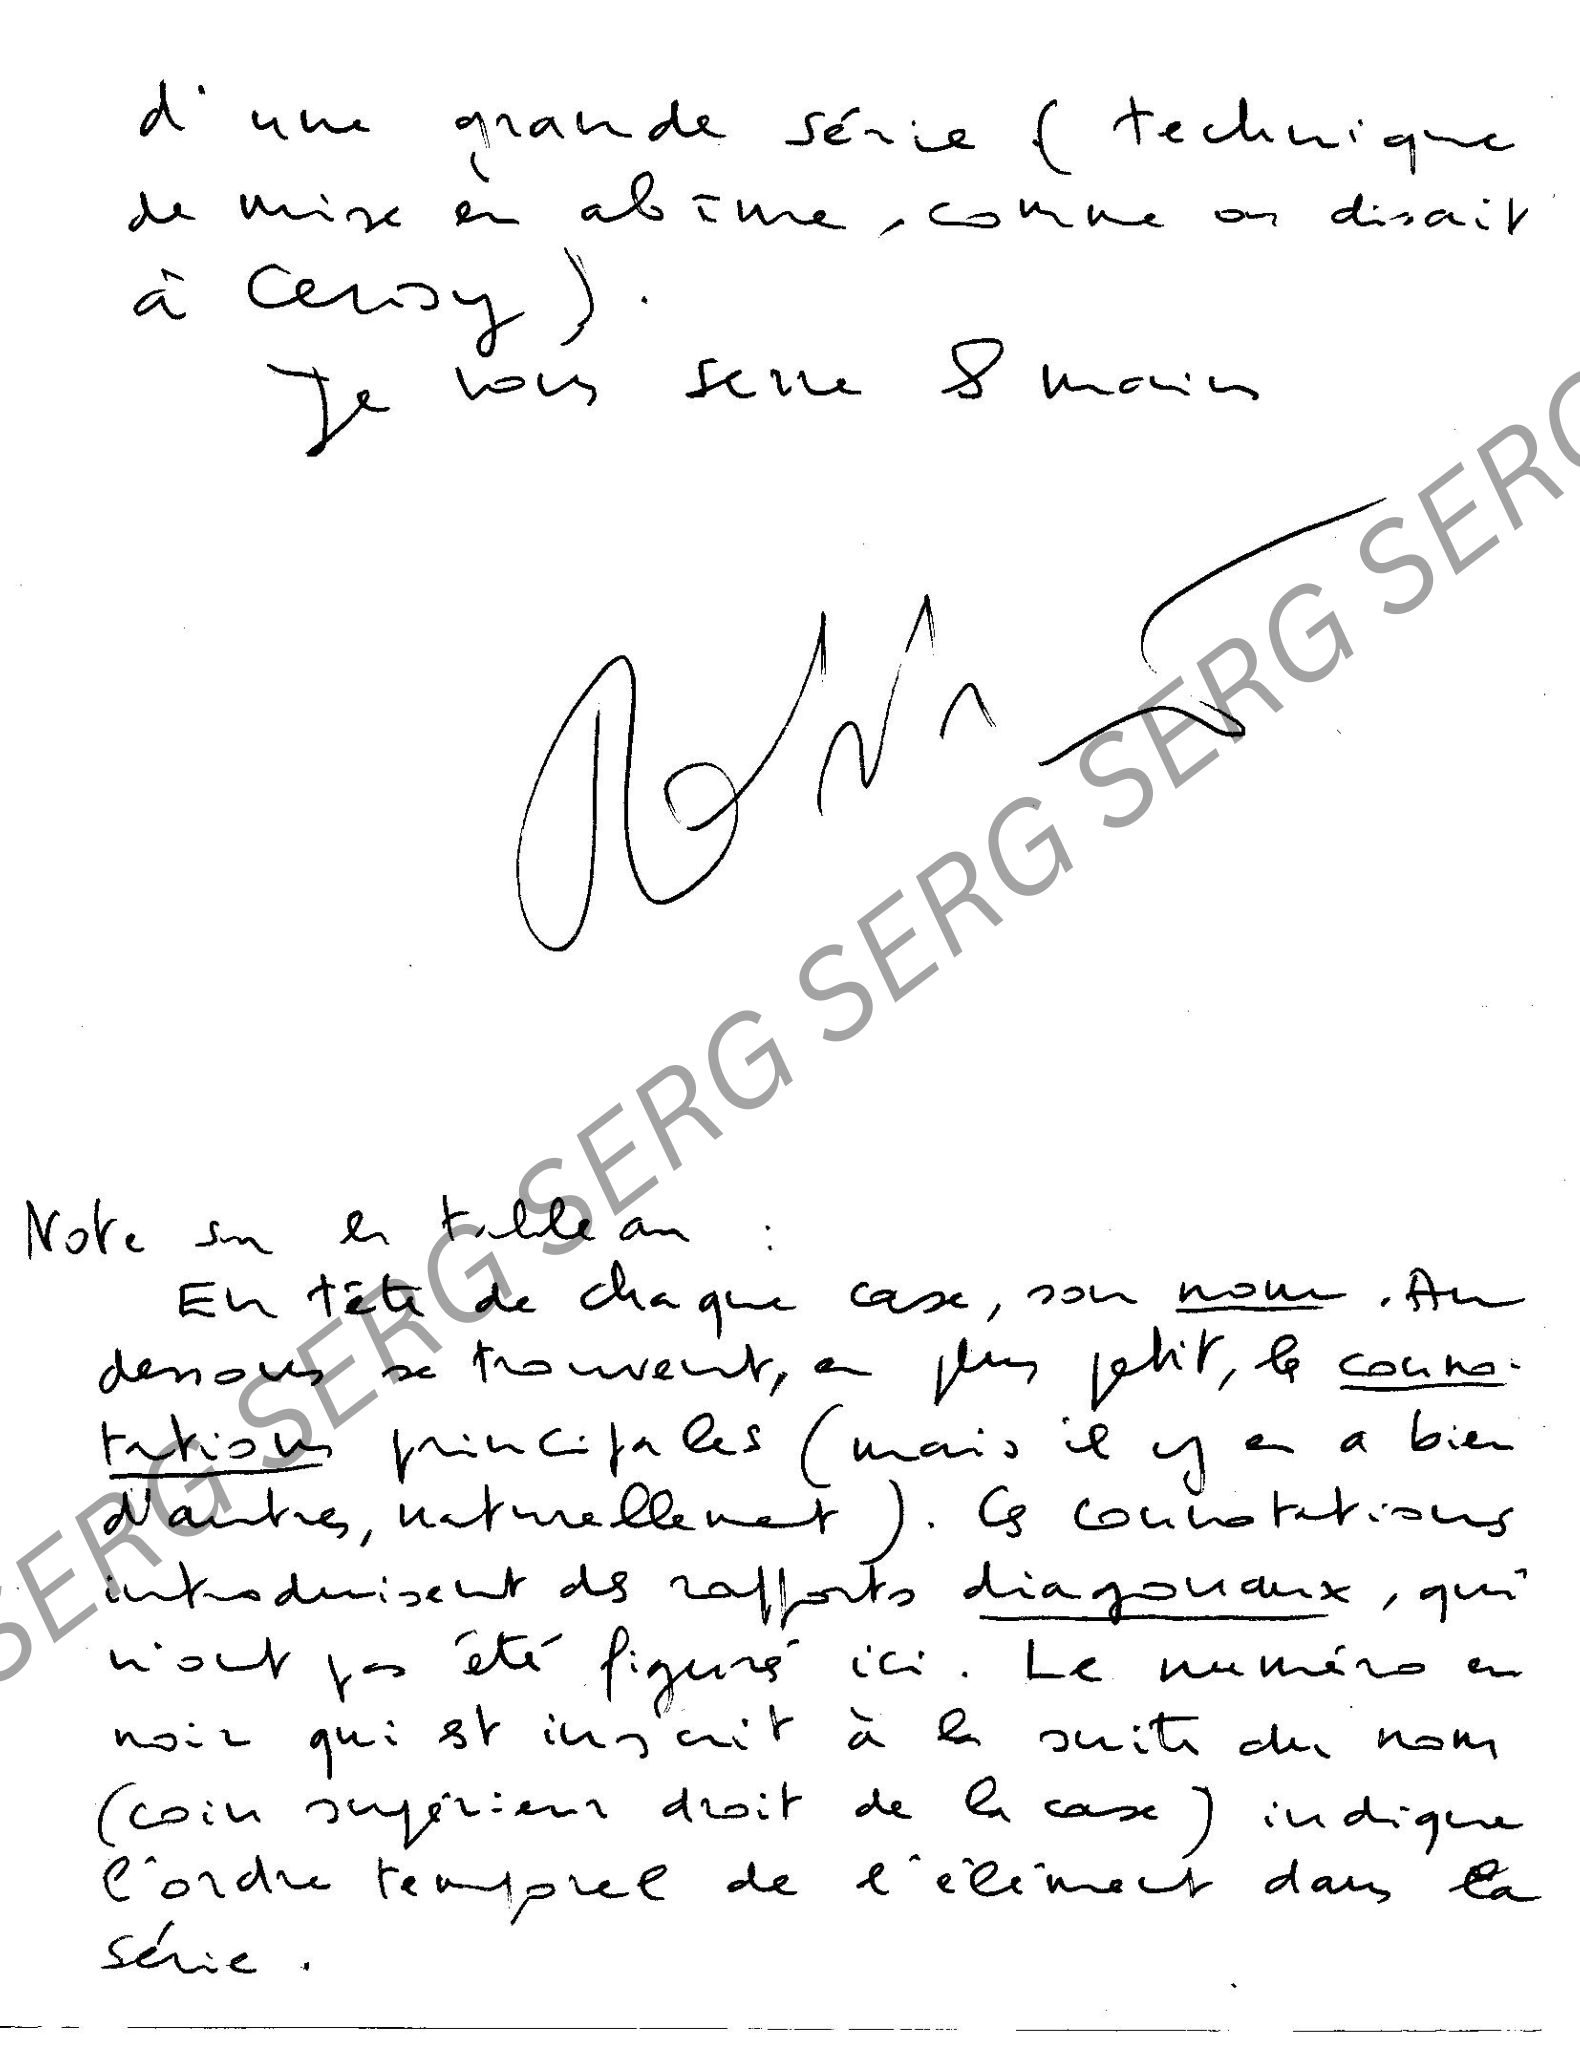 d'une grande série (technique
de mise en abîme, comme on disait
à Cerisy).
Je vous serre 8 mains
SERG SERG SERG SERG SERG SERG SERG
Note sur le tableau :
En tête de chaque case, son nom. Au
dessous se trouvent, en plus petit, les conno-
tations principales (mais il y en a bien
d'autres, naturellement). Ces connotations
introduisent des rapports diagonaux, qui
n'ont pas été figurés ici. Le numéro en
noir qui est inscrit à la suite du nom
(coin supérieur droit de la case) indique
l'ordre temporel de l'élément dans la
série.